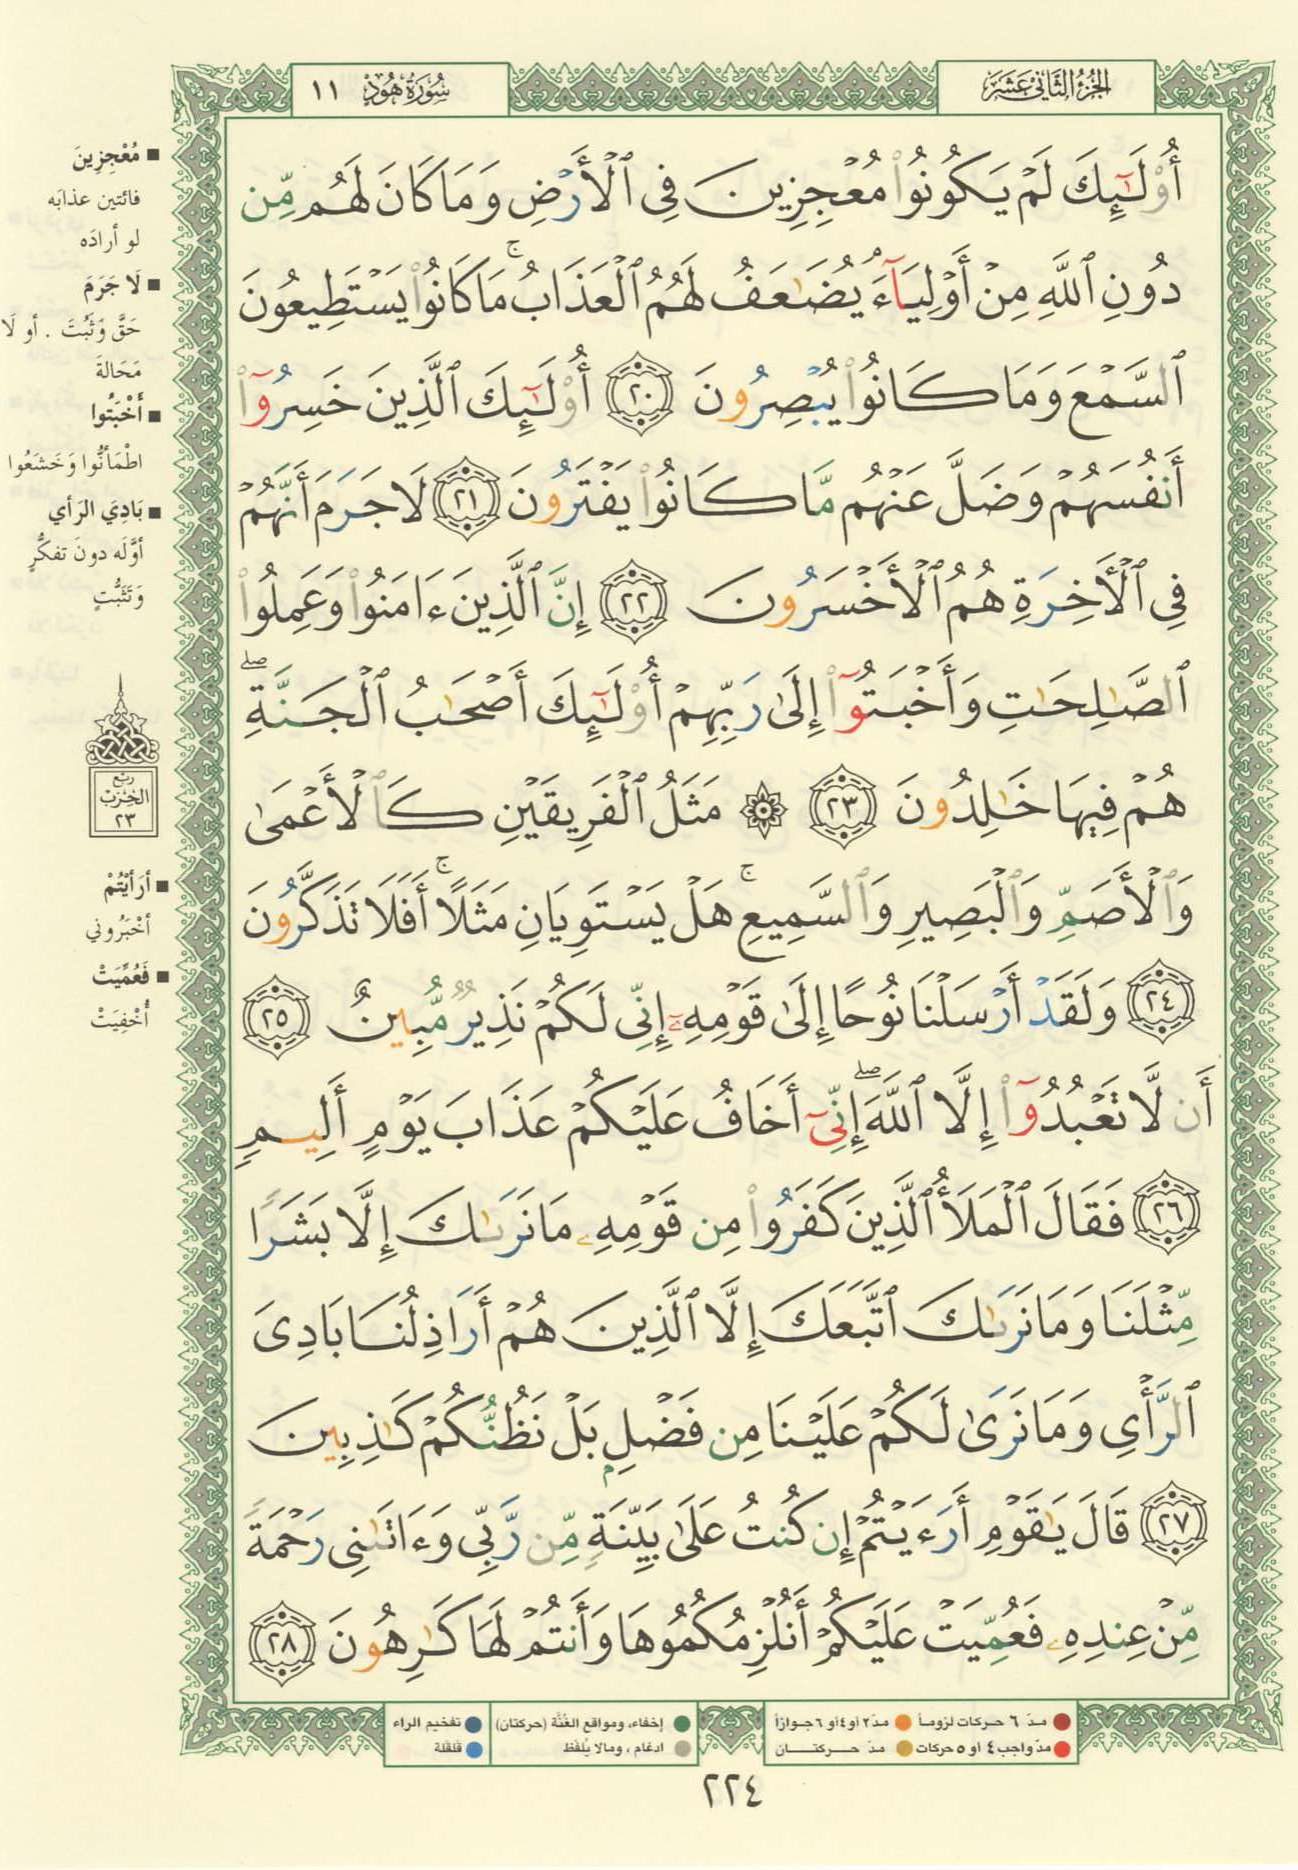 الجزء الثاني عشر
سورة هود ١١
أُو۟لَـٰٓئِكَ لَمْ يَكُونُوا۟ مُعْجِزِينَ فِى ٱلْأَرْضِ وَمَا كَانَ لَهُم مِّن
دُونِ ٱللَّهِ مِنْ أَوْلِيَآءَ ۘ يُضَـٰعَفُ لَهُمُ ٱلْعَذَابُ ۚ مَا كَانُوا۟ يَسْتَطِيعُونَ
ٱلسَّمْعَ وَمَا كَانُوا۟ يُبْصِرُونَ ٢٠ أُو۟لَـٰٓئِكَ ٱلَّذِينَ خَسِرُوٓا۟
أَنفُسَهُمْ وَضَلَّ عَنْهُم مَّا كَانُوا۟ يَفْتَرُونَ ٢١ لَا جَرَمَ أَنَّهُمْ
فِى ٱلْـَٔاخِرَةِ هُمُ ٱلْأَخْسَرُونَ ٢٢ إِنَّ ٱلَّذِينَ ءَامَنُوا۟ وَعَمِلُوا۟
ٱلصَّـٰلِحَـٰتِ وَأَخْبَتُوٓا۟ إِلَىٰ رَبِّهِمْ أُو۟لَـٰٓئِكَ أَصْحَـٰبُ ٱلْجَنَّةِ ۖ
هُمْ فِيهَا خَـٰلِدُونَ ٢٣ ۞ مَثَلُ ٱلْفَرِيقَيْنِ كَٱلْأَعْمَىٰ
وَٱلْأَصَمِّ وَٱلْبَصِيرِ وَٱلسَّمِيعِ ۚ هَلْ يَسْتَوِيَانِ مَثَلًا ۚ أَفَلَا تَذَكَّرُونَ
٢٤ وَلَقَدْ أَرْسَلْنَا نُوحًا إِلَىٰ قَوْمِهِۦٓ إِنِّى لَكُمْ نَذِيرٌ مُّبِينٌ ٢٥
أَن لَّا تَعْبُدُوٓا۟ إِلَّا ٱللَّهَ ۖ إِنِّىٓ أَخَافُ عَلَيْكُمْ عَذَابَ يَوْمٍ أَلِيمٍ
٢٦ فَقَالَ ٱلْمَلَأُ ٱلَّذِينَ كَفَرُوا۟ مِن قَوْمِهِۦ مَا نَرَىٰكَ إِلَّا بَشَرًا
مِّثْلَنَا وَمَا نَرَىٰكَ ٱتَّبَعَكَ إِلَّا ٱلَّذِينَ هُمْ أَرَاذِلُنَا بَادِىَ
ٱلرَّأْىِ وَمَا نَرَىٰ لَكُمْ عَلَيْنَا مِن فَضْلٍۭ بَلْ نَظُنُّكُمْ كَـٰذِبِينَ
٢٧ قَالَ يَـٰقَوْمِ أَرَءَيْتُمْ إِن كُنتُ عَلَىٰ بَيِّنَةٍ مِّن رَّبِّى وَءَاتَىٰنِى رَحْمَةً
مِّنْ عِندِهِۦ فَعُمِّيَتْ عَلَيْكُمْ أَنُلْزِمُكُمُوهَا وَأَنتُمْ لَهَا كَـٰرِهُونَ ٢٨
■ مُعْجِزِينَ
فائتين عذابَه
لو أرادَه
■ لَا جَرَمَ
حَقَّ وَثَبَتَ . أو لَا
مَحَالةَ
■ أَخْبَتُوا
اطْمَأَنُّوا وَخَشَعُوا
■ بَادِيَ الرَأي
أوَّلَه دونَ تفكُّرٍ
وَتَثَبُّتٍ
ربع
الحزب
٢٣
■ أرَأيْتُمْ
أخْبَرُوني
■ فَعُمِّيَتْ
أُخْفِيَتْ
مدّ ٦ حركات لزوماً
مدّ ٢ أو ٤ أو ٦ جوازاً
مدّ واجب ٤ أو ٥ حركات
مدّ حركتان
إخفاء، ومواقع الغُنَّة (حركتان)
ادغام ، ومالا يُلفَظ
تفخيم الراء
قلقلة
٢٢٤